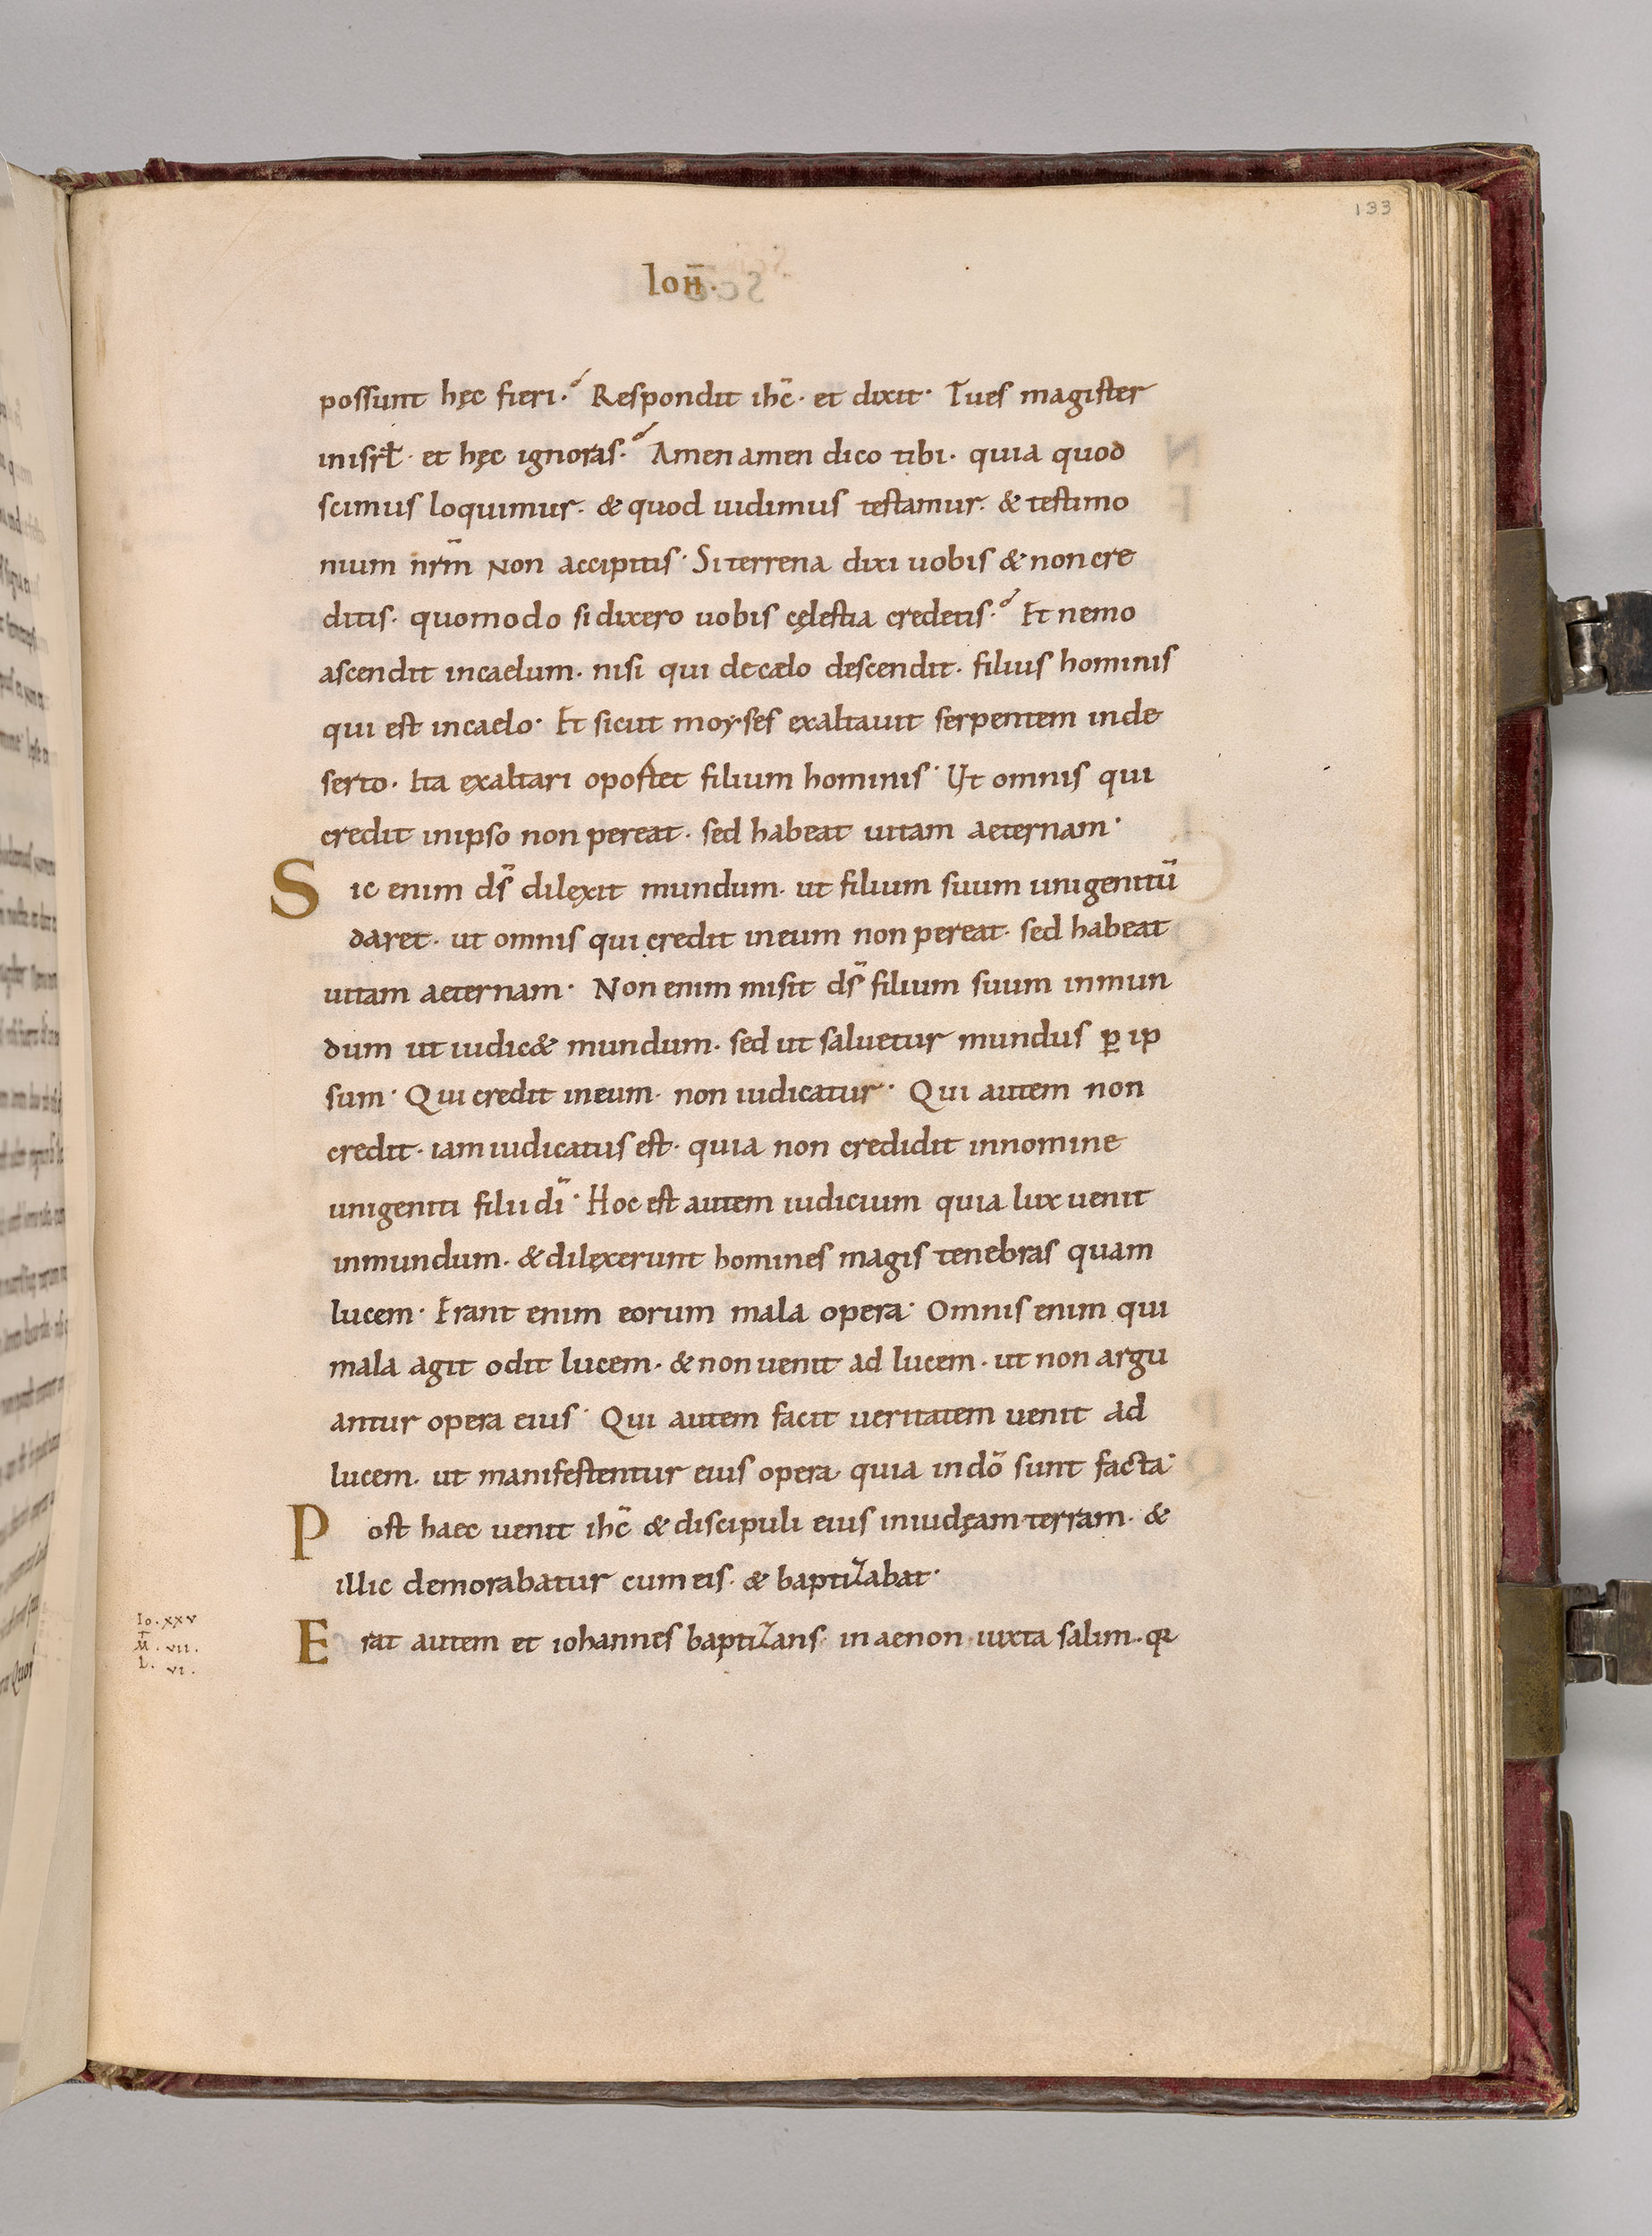 133
Ioħ.
possunt hęc fieri.? Respondit ihc̄· et dixit· Tu es magister
in isrł· et hęc ignoras.? Amen amen dico tibi· quia quod
scimus loquimur· & quod uidimus testamur· & testimo
nium nrm̄ non accipitis· Si terrena dixi uobis & non cre
ditis· quomodo si dixero uobis cęlestia credetis.? Et nemo
ascendit in caelum· nisi qui de cælo descendit· filius hominis
qui est in caelo· Et sicut moyses exaltauit serpentem in de
serto· Ita exaltari oportet filium hominis· Ut omnis qui
credit in ipso non pereat· sed habeat uitam aeternam·
Sic enim ds̄ dilęxit mundum· ut filium suum unigenitū
daret· ut omnis qui credit in eum non pereat· sed habeat
uitam aeternam· Non enim misit ds̄ filium suum in mun
dum ut iudic& mundum· sed ut saluetur mundus ꝑ ip
sum· Qui credit in eum· non iudicatur· Qui autem non
credit· iam iudicatus est· quia non credidit in nomine
unigeniti filii dī· Hoc est autem iudicium quia lux uenit
in mundum· & dilęxerunt homines magis tenebras quam
lucem· Erant enim eorum mala opera· Omnis enim qui
mala agit odit lucem· & non uenit ad lucem· ut non argu
antur opera eius· Qui autem facit ueritatem uenit ad
lucem· ut manifestentur eius opera· quia in dō sunt facta·
Post haec uenit ihc̄ & discipuli eius in iudęam terram· &
illic demorabatur cum eis· & baptizabat·
Io. xxv
M̄. vii.
L. vi.
Erat autem et iohannes baptizans· in aenon iuxta salim· qꝛ